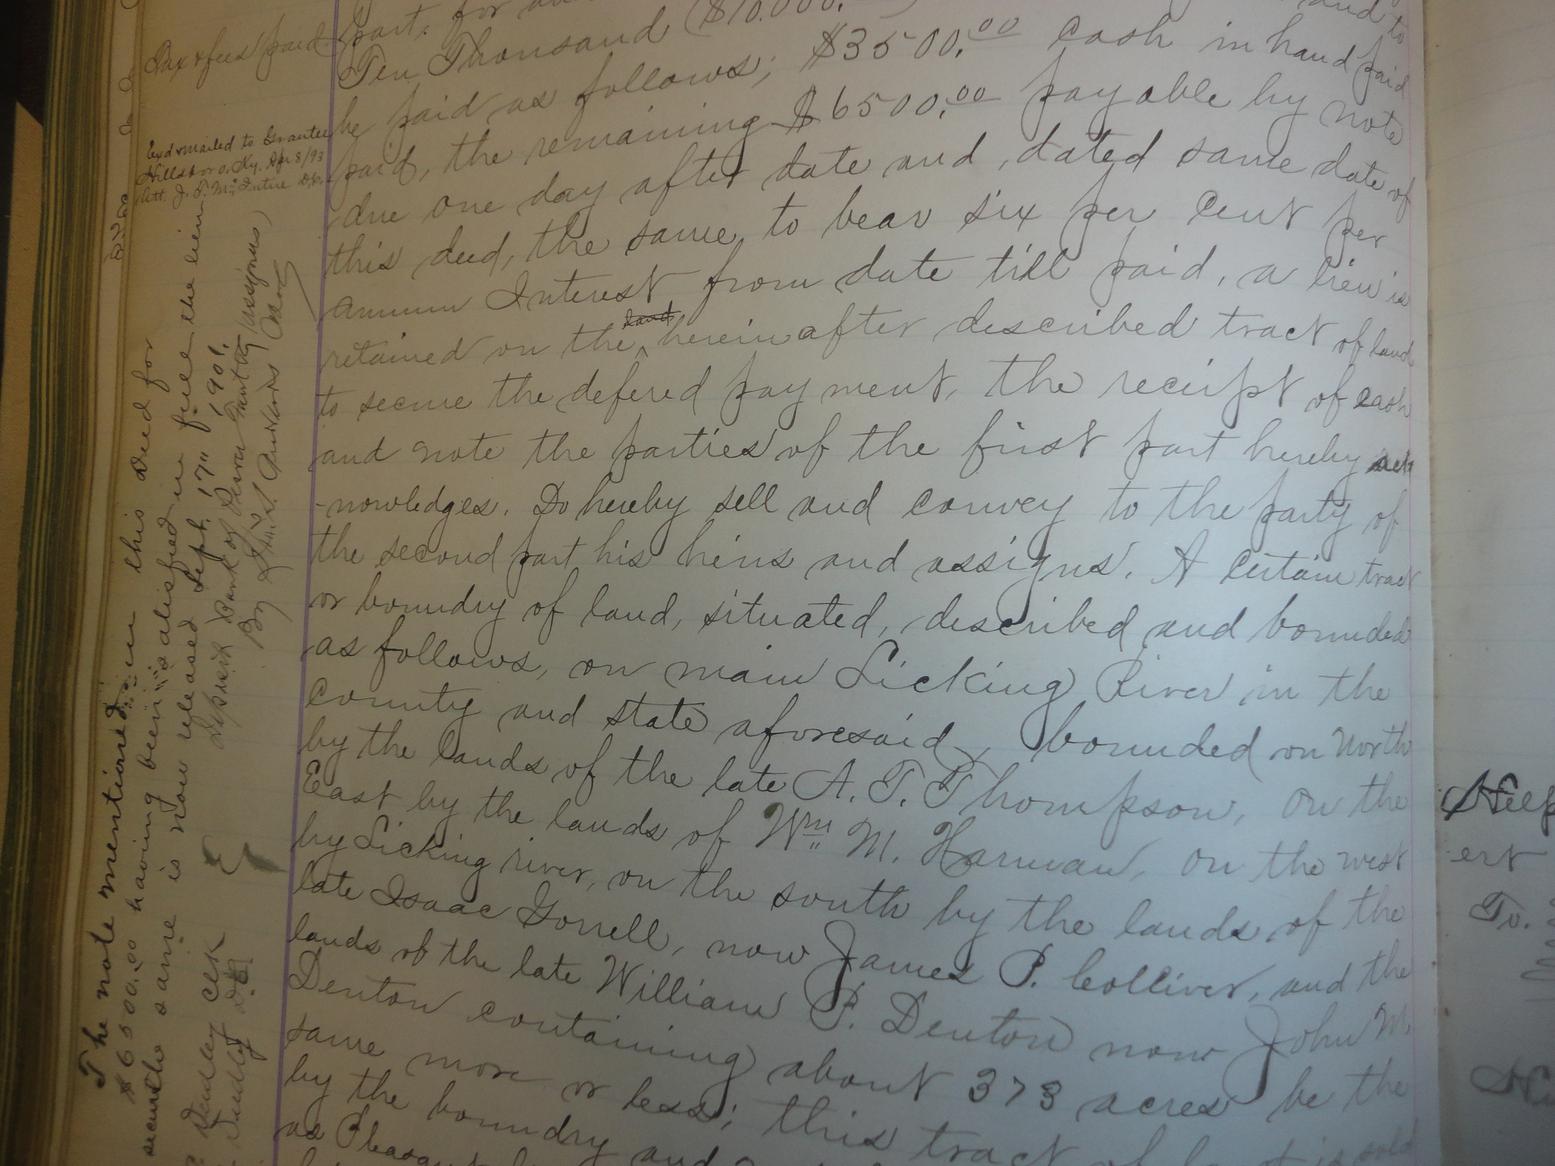 part, for
Ten Thousand ($10.000.
be paid as follows; $3500.00 cash in hand paid
paid, the remaining $6500.00 payable by note
due one day after date and, dated same date of
this deed, the same, to bear six per cent per
annum Interest from date till paid, a lien is
retained on the land herein after described tract of land
to secure the defered payment, the receipt of cash
and note the parties of the first part hereby ack
-nowledges. Do hereby sell and convey to the party of
the second part his heirs and assigns. A certain tract
or boundry of land, situated, described and bounded
as follows, on main Licking River in the
county and state aforesaid, bounded on North
by the lands of the late A. T. Thompson, on the
East by the lands of Wm M. Harman, on the west
by Licking river, on the south by the lands of the
late Isaac Gorrell, now James P. Colliver, and the
lands of the late William P. Denton now John M.
Denton containing about 373 acres be the
same more or less; this tract of is sold
by the boundry and
as
Tax & fees paid
Exd & mailed to Grantee
Hillsboro, Ky. Apr 8/93
Att. J. P. McIntire
The note mentioned in this deed for
$6500.00 having been satisfied in full the lien
secur the same is now released Sept. 17" 1901.
Deposit Bank of
By
Dudley Clk
Dudley D.C.
ert
To.